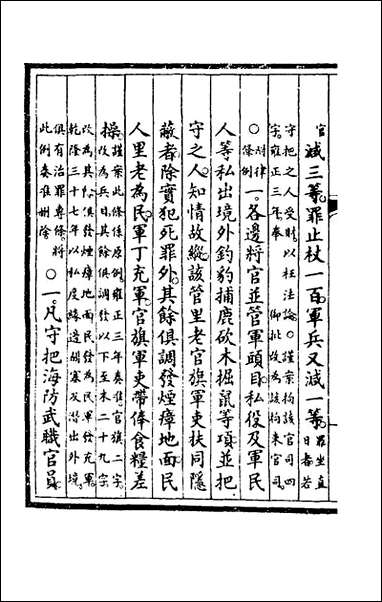 官減三等罪止杖一百軍兵又減一等罪坐直日者若
守把之人受財以枉法論○謹案拘該官司四
字雍正三年奉 御批改為該拘束官司
○附律條例一各邊將官並管軍頭目私役及軍民
人等私出境外釣豹捕鹿砍木掘鼠等項並把
守之人知情故縱該管里老官旗軍吏扶同隱
蔽者除實犯死罪外其餘俱調發煙瘴地面民
人里老為民軍丁充軍官旗軍吏帶俸食糧差
操謹案此條係原例雍正三年奏准官旗二字
改為兵目其餘俱調發以下至末二十九字
改為其餘俱發煙瘴地面民發為民軍發充軍
乾隆三十七年以私度緣邊胡塞及潛出外境
俱有治罪專條將
此例奏准刪除○一凡守把海防武職官員